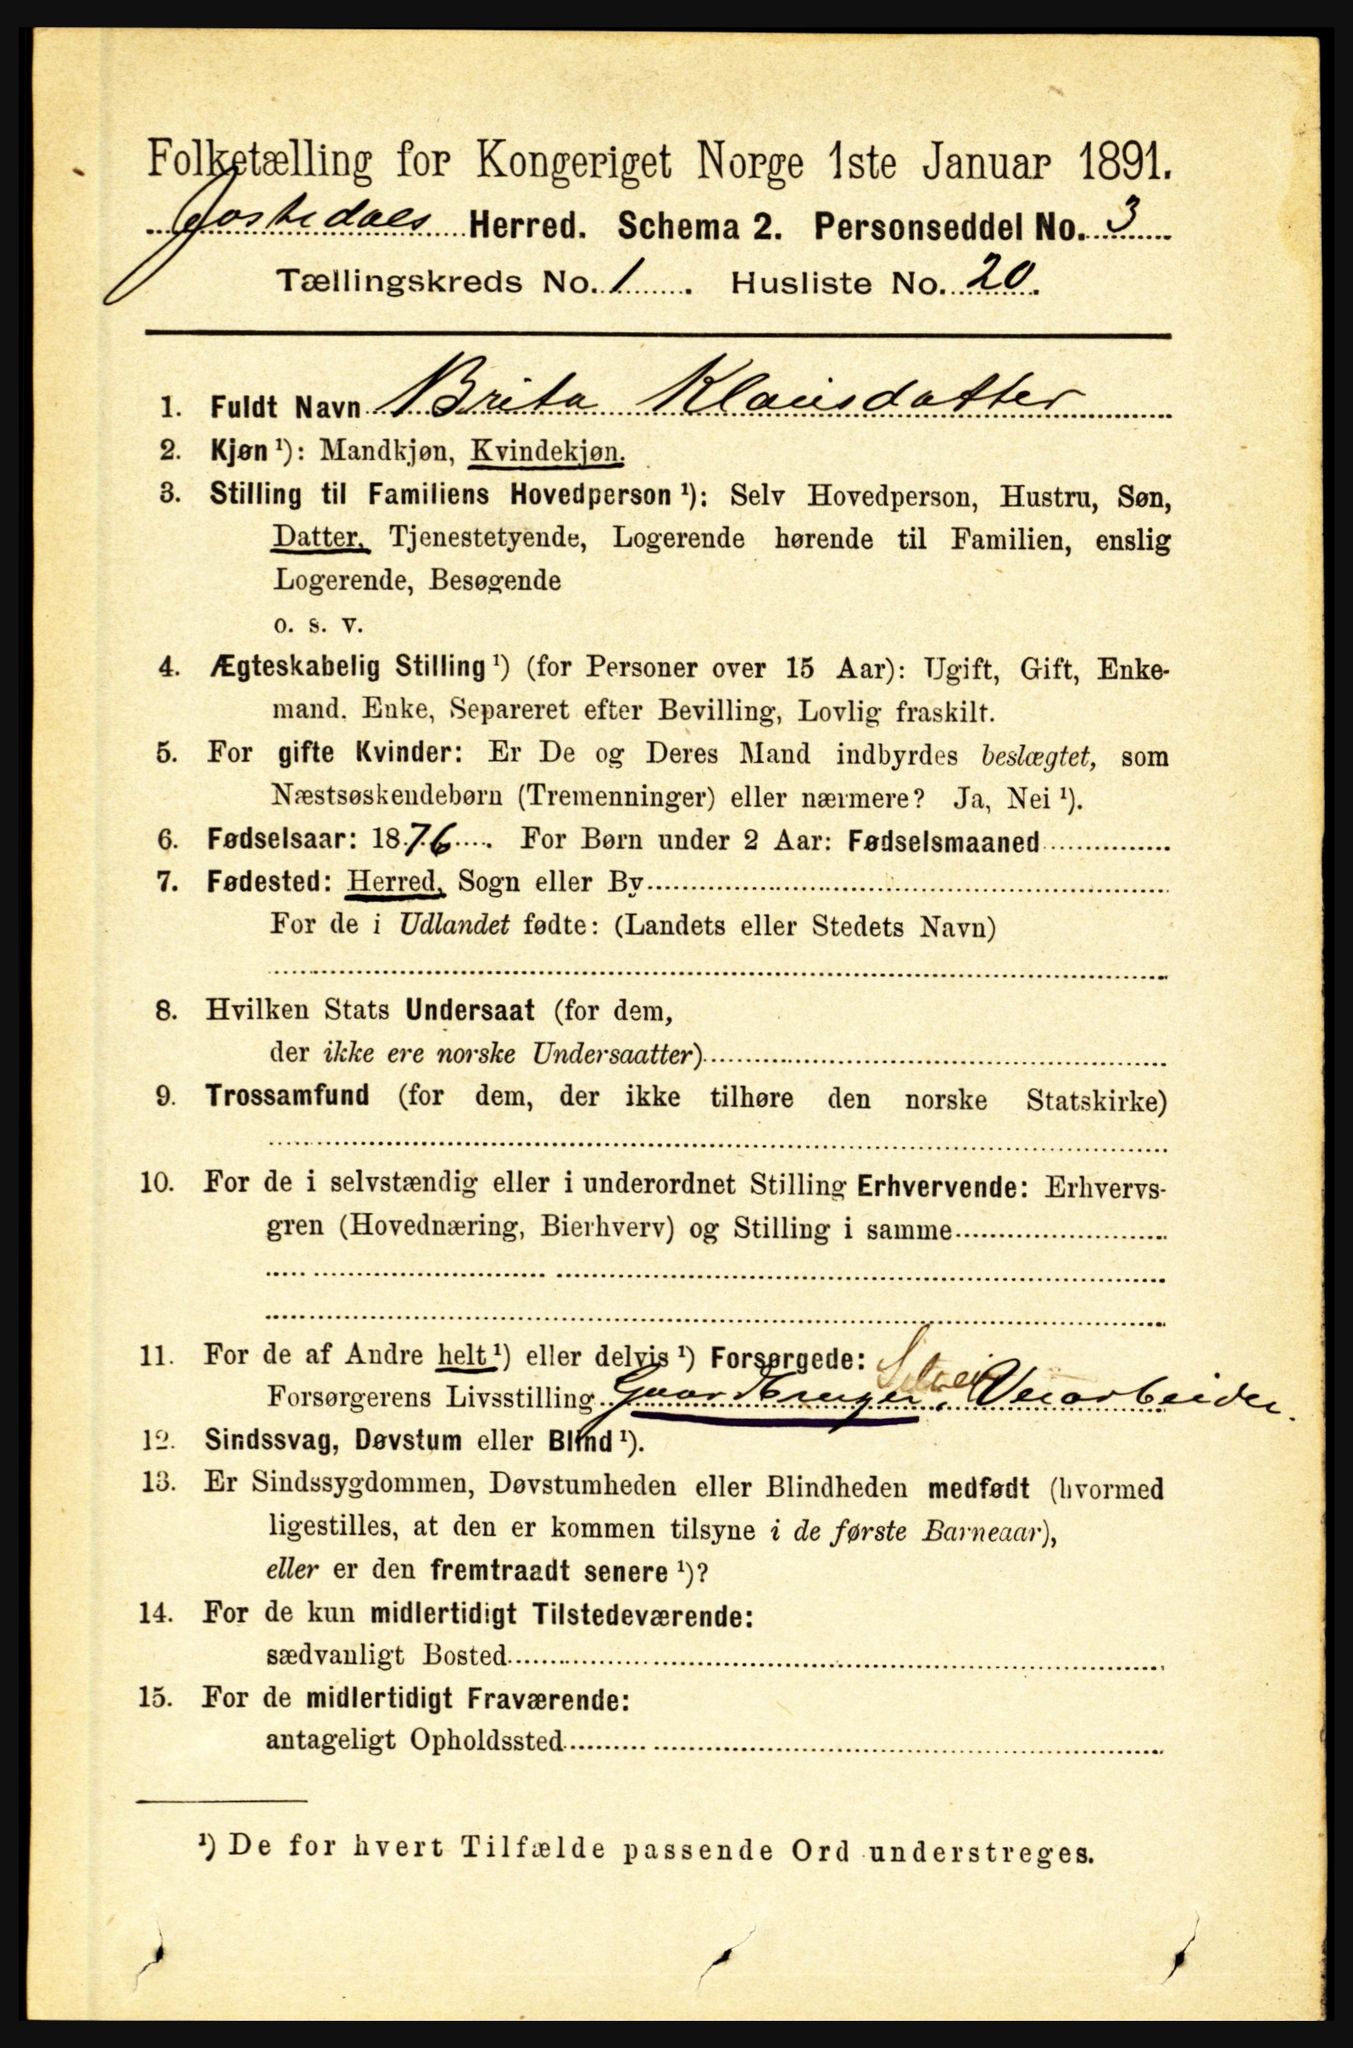 Folketælling for Kongeriget Norge 1ste Januar 1891.
Jostedals Herred. Schema 2. Personseddel No. 3
Tællingskreds No. 1. Husliste No. 20.
1. Fuldt Navn Brita Klausdatter
2. Kjøn ¹): Mandkjøn, Kvindekjøn.
3. Stilling til Familiens Hovedperson ¹): Selv Hovedperson, Hustru, Søn,
Datter, Tjenestetyende, Logerende hørende til Familien, enslig
Logerende, Besøgende
o. s. v.
4. Ægteskabelig Stilling ¹) (for Personer over 15 Aar): Ugift, Gift, Enke-
mand, Enke, Separeret efter Bevilling, Lovlig fraskilt.
5. For gifte Kvinder: Er De og Deres Mand indbyrdes beslægtet, som
Næstsøskendebørn (Tremenninger) eller nærmere? Ja, Nei ¹).
6. Fødselsaar: 1876. For Børn under 2 Aar: Fødselsmaaned
7. Fødested: Herred, Sogn eller By
For de i Udlandet fødte: (Landets eller Stedets Navn)
8. Hvilken Stats Undersaat (for dem,
der ikke ere norske Undersaatter)
9. Trossamfund (for dem, der ikke tilhøre den norske Statskirke)
10. For de i selvstændig eller i underordnet Stilling Erhvervende: Erhvervs-
gren (Hovednæring, Bierhverv) og Stilling i samme
11. For de af Andre helt ¹) eller delvis ¹) Forsørgede: Selveier
Forsørgerens Livsstilling Gaardbruger, Veiarbeider.
12. Sindssvag, Døvstum eller Blind ¹).
13. Er Sindssygdommen, Døvstumheden eller Blindheden medfødt (hvormed
ligestilles, at den er kommen tilsyne i de første Barneaar),
eller er den fremtraadt senere ¹)?
14. For de kun midlertidigt Tilstedeværende:
sædvanligt Bosted
15. For de midlertidigt Fraværende:
antageligt Opholdssted
¹) De for hvert Tilfælde passende Ord understreges.